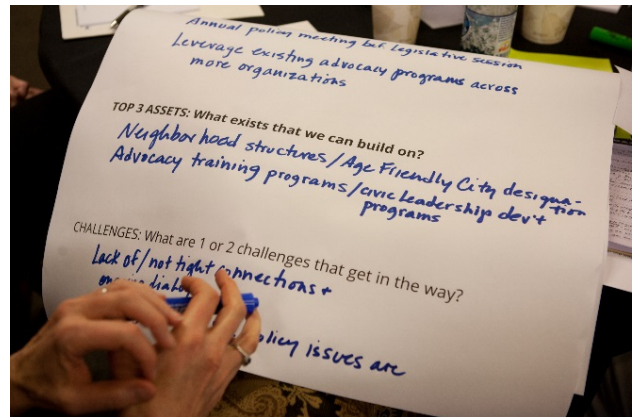 Annual policy meeting bef. legislative session
Leverage existing advocacy programs across
more organizations
TOP 3 ASSETS: What exists that we can build on?
Neighborhood structures/Age Friendly City designa-
tion
Advocacy training programs/civic leadership dev't
programs
CHALLENGES: What are 1 or 2 challenges that get in the way?
Lack of/not tight connections +
policy issues are